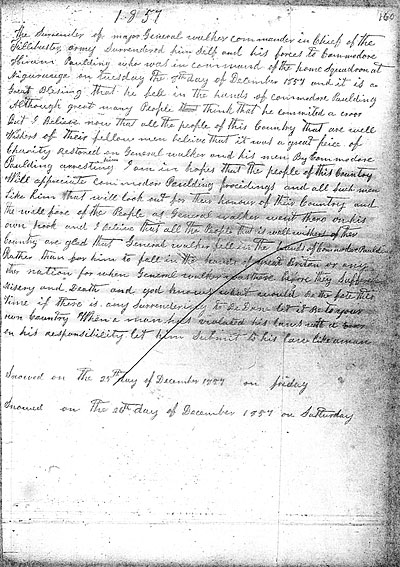 1857
160
The Surender of major General walker commander in Chief of the
Fillibuster army Surendered him Self and his forces to Commodore
Hiram Paulding who was in command of the home Squadron at
Nigurauga on tuesday the day of December 1857 and it is a
Great Blesing that he fell in the hands of commodore Paulding
Although great many People think that he commited a eroor
But I Believe now that all the people of this Country that are well
wishers of their fellow men believe that it was a great peice of
Charity restored on General walker and his men By Commodore
Paulding arresting him I am in hopes that the people of this Country
Will appreciate commodore Paulding procidings and all such men
like him that will look out for their honour of this Country and
the well fare of the People as General walker went there on his
own hook and I believe that all the People that is well wishers of her
Country are glad that General walker fell in the hands of Commodore Pauld
Rather than for him to fall in the hands of great Britan or any
other nation for when General walker was there before they Suffered
Misery and Death and god knows what would be the fate this
time if there is any Surrendering to Be Done let it Be to your
own Country When a man has violated his laws with a
on his responsibility let him Submit to his law like a man
Snowed on the 25th day of December 1857 on friday
Snowed on the 26th day of December 1857 on Satturday